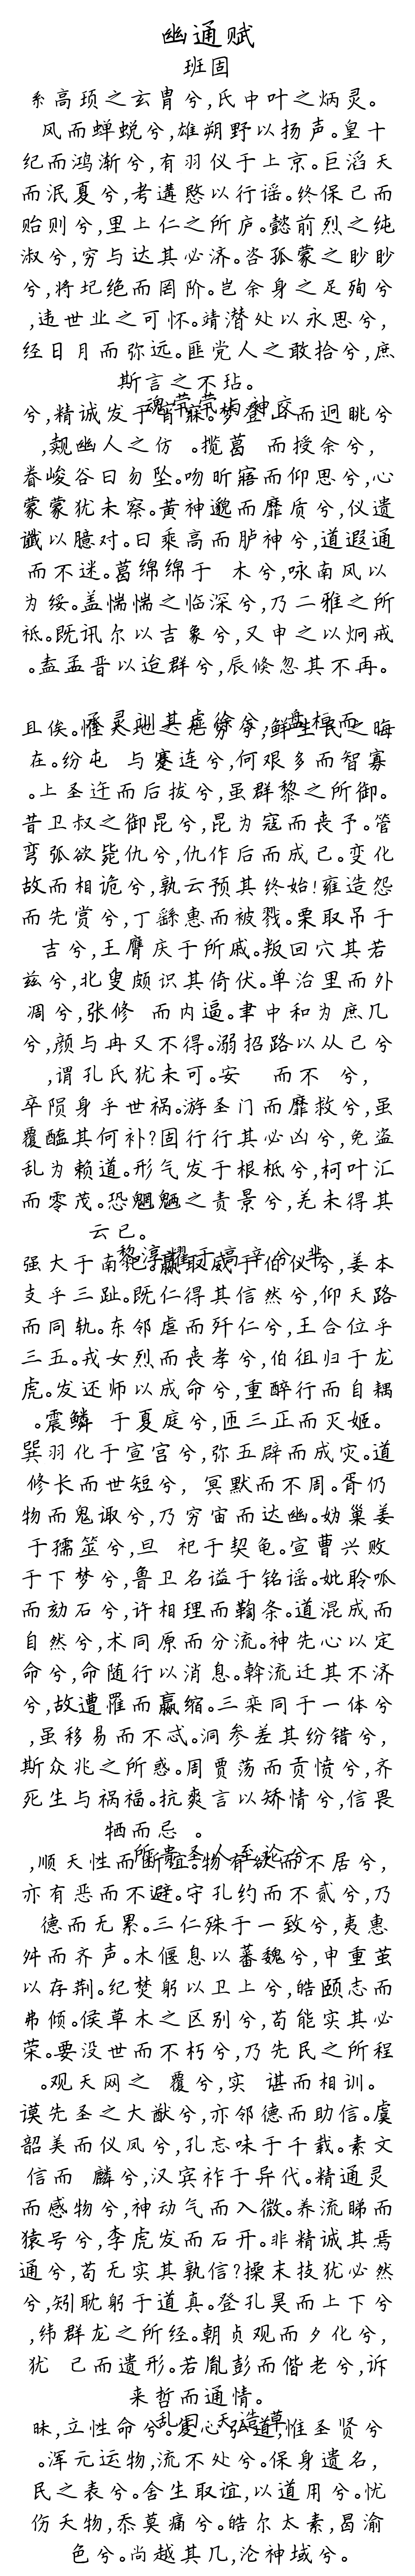 幽通赋
班固
系高顼之玄胄兮,氏中叶之炳灵。
风而蝉蜕兮,雄朔野以扬声。皇十
纪而鸿渐兮,有羽仪于上京。巨滔天
而泯夏兮,考遘愍以行谣。终保己而
贻则兮,里上仁之所庐。懿前烈之纯
淑兮,穷与达其必济。咨孤蒙之眇眇
兮,将圮绝而罔阶。岂余身之足殉兮
,违世业之可怀。靖潜处以永思兮,
经日月而弥远。匪党人之敢拾兮,庶
斯言之不玷。
魂茕茕与神交
兮,精诚发于宵寐。梦登山而迥眺兮
,觌幽人之仿 。揽葛 而授余兮,
眷峻谷曰勿坠。吻昕寤而仰思兮,心
蒙蒙犹未察。黄神邈而靡质兮,仪遗
谶以臆对。曰乘高而胪神兮,道遐通
而不迷。葛绵绵于 木兮,咏南风以
为绥。盖惴惴之临深兮,乃二雅之所
祗。既讯尔以吉象兮,又申之以炯戒
。盍孟晋以迨群兮,辰倏忽其不再。
承灵训其虚徐兮,盘桓而
且俟。惟天地之无穷兮,鲜生民之晦
在。纷屯 与蹇连兮,何艰多而智寡
。上圣迕而后拔兮,虽群黎之所御。
昔卫叔之御昆兮,昆为寇而丧予。管
弯弧欲毙仇兮,仇作后而成己。变化
故而相诡兮,孰云预其终始!雍造怨
而先赏兮,丁繇惠而被戮。栗取吊于
吉兮,王膺庆于所戚。叛回穴其若
兹兮,北叟颇识其倚伏。单治里而外
凋兮,张修 而内逼。聿中和为庶几
兮,颜与冉又不得。溺招路以从己兮
,谓孔氏犹未可。安 而不 兮,
卒陨身乎世祸。游圣门而靡救兮,虽
覆醢其何补?固行行其必凶兮,免盗
乱为赖道。形气发于根柢兮,柯叶汇
而零茂。恐魍魉之责景兮,羌未得其
云已。
黎淳耀于高辛兮,芈
强大于南汜。嬴取威于伯仪兮,姜本
支乎三趾。既仁得其信然兮,仰天路
而同轨。东邻虐而歼仁兮,王合位乎
三五。戎女烈而丧孝兮,伯徂归于龙
虎。发还师以成命兮,重醉行而自耦
。震鳞 于夏庭兮,匝三正而灭姬。
巽羽化于宣宫兮,弥五辟而成灾。道
修长而世短兮, 冥默而不周。胥仍
物而鬼诹兮,乃穷宙而达幽。妫巢姜
于孺筮兮,旦 祀于契龟。宣曹兴败
于下梦兮,鲁卫名谥于铭谣。妣聆呱
而劾石兮,许相理而鞫条。道混成而
自然兮,术同原而分流。神先心以定
命兮,命随行以消息。斡流迁其不济
兮,故遭罹而嬴缩。三栾同于一体兮
,虽移易而不忒。洞参差其纷错兮,
斯众兆之所惑。周贾荡而贡愤兮,齐
死生与祸福。抗爽言以矫情兮,信畏
牺而忌 。
所贵圣人至论兮
,顺天性而断谊。物有欲而不居兮,
亦有恶而不避。守孔约而不贰兮,乃
德而无累。三仁殊于一致兮,夷惠
舛而齐声。木偃息以蕃魏兮,申重茧
以存荆。纪焚躬以卫上兮,皓颐志而
弗倾。侯草木之区别兮,苟能实其必
荣。要没世而不朽兮,乃先民之所程
。观天网之 覆兮,实 谌而相训。
谟先圣之大猷兮,亦邻德而助信。虞
韶美而仪凤兮,孔忘味于千载。素文
信而 麟兮,汉宾祚于异代。精通灵
而感物兮,神动气而入微。养流睇而
猿号兮,李虎发而石开。非精诚其焉
通兮,苟无实其孰信?操末技犹必然
兮,矧耽躬于道真。登孔昊而上下兮
,纬群龙之所经。朝贞观而夕化兮,
犹 己而遗形。若胤彭而偕老兮,诉
来哲而通情。
乱曰:天造草
昧,立性命兮。复心弘道,惟圣贤兮
。浑元运物,流不处兮。保身遗名,
民之表兮。舍生取谊,以道用兮。忧
伤夭物,忝莫痛兮。皓尔太素,曷渝
色兮。尚越其几,沦神域兮。